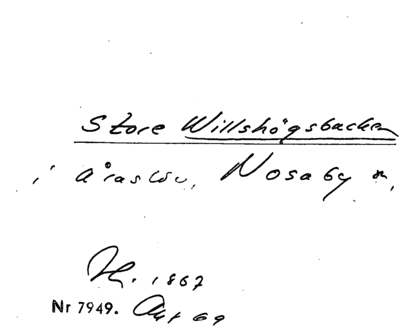 Store Willshögsbacken
i Araslöv, Nosaby sn,
1867
Nr 7949. Akt 69